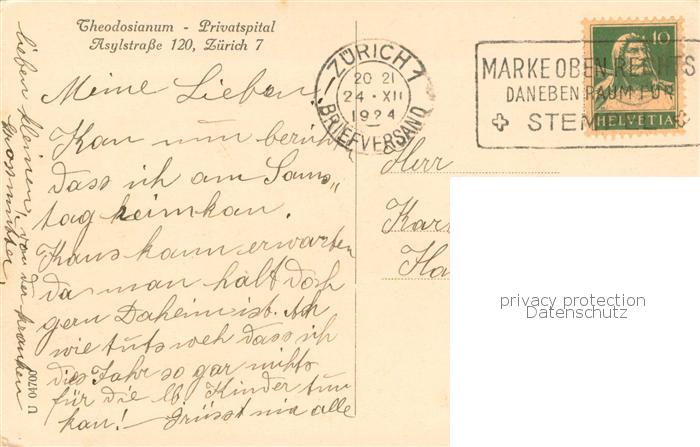 Theodosianum - Privatspital
Asylstraße 120, Zürich 7
Meine Lieben!
Kan nun berich
dass ich am Sams„
tag heimkan.
Kaus kann erwarten
da man halt doch
gern Daheim ist. Ach
wie tuts weh dass ich
dies Jahr so gar nichts
für die lb. Kinder tun
kan! – Grüsst mir alle
lieben kleinen, von der kranken
Grossmutter
U 04700
ZÜRICH 1
20 21
24·XII
1924
BRIEFVERSAND
MARKE OBEN RECHTS
DANEBEN RAUM FÜR
STEMPEL
10
HELVETIA
Herr
Kar
Ha
privacy protection
Datenschutz